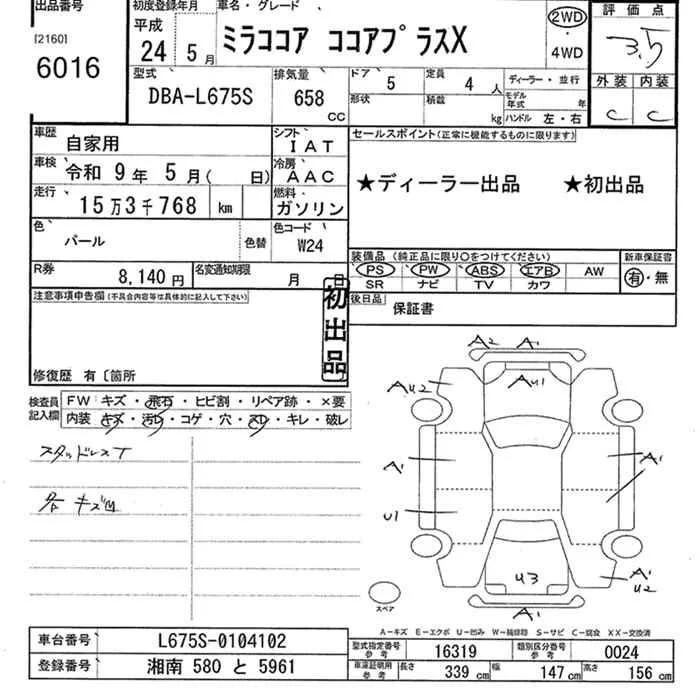 出品番号
[2160]
6016
初度登録年月
平成
24 5 月
車名・グレード
ミラココア ココアプラスX
2WD
・
4WD
評 価 点
3.5
外装 内装
C C
型式
DBA-L675S
排気量
658
CC
ドア
5
定員
4 人
形状
積載
kg
ディーラー・並行
モデル年式 年
ハンドル 左・右
車歴
自家用
シフト
IAT
車検
令和 9 年 5 月( 日)
冷房
AAC
走行
15 万 3 千 768 km
燃料
ガソリン
色
パール
色替
色コード
W24
R券
8,140 円
名変通知期限
月 日
セールスポイント(正常に機能するものに限ります)
★ディーラー出品 ★初出品
装備品 (純正品に限り○をつけてください)
PS PW ABS エアB AW
SR ナビ TV カワ
新車保証書
有・無
後日品
保証書
注意事項申告欄(不具合内容等は具体的に記入して下さい)
初出品
修復歴 有〔箇所
検査員記入欄
FW キズ・飛石・ヒビ割・リペア跡・×要
内装 キズ・汚レ・コゲ・穴・スレ・キレ・破レ
スタッドレスT
各キズ凹
A2 A1
AU2 AU1
A1 A1
U1
U3
A1 U2
A1
スペア
A-キズ E-エクボ U-凹み W-補修跡 S-サビ C-腐食 XX-交換済
車台番号
L675S-0104102
登録番号
湘南 580 と 5961
型式指定番号 参考
16319
類別区分番号 参考
0024
車庫証明用 参考
長さ 339 cm 幅 147 cm 高さ 156 cm